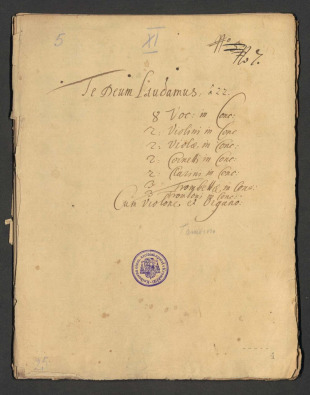 5 XI No 7.
Te Deum Laudamus, à 22.
8 Voc: in Conc:
2. Violini in Conc:
2. Violæ in Conc:
2. Cornetti in Conc:
2. Clarini in Conc:
3 Trombettæ in Conc:
3 Tromboni in Conc:
Cum Violone, et Organo.